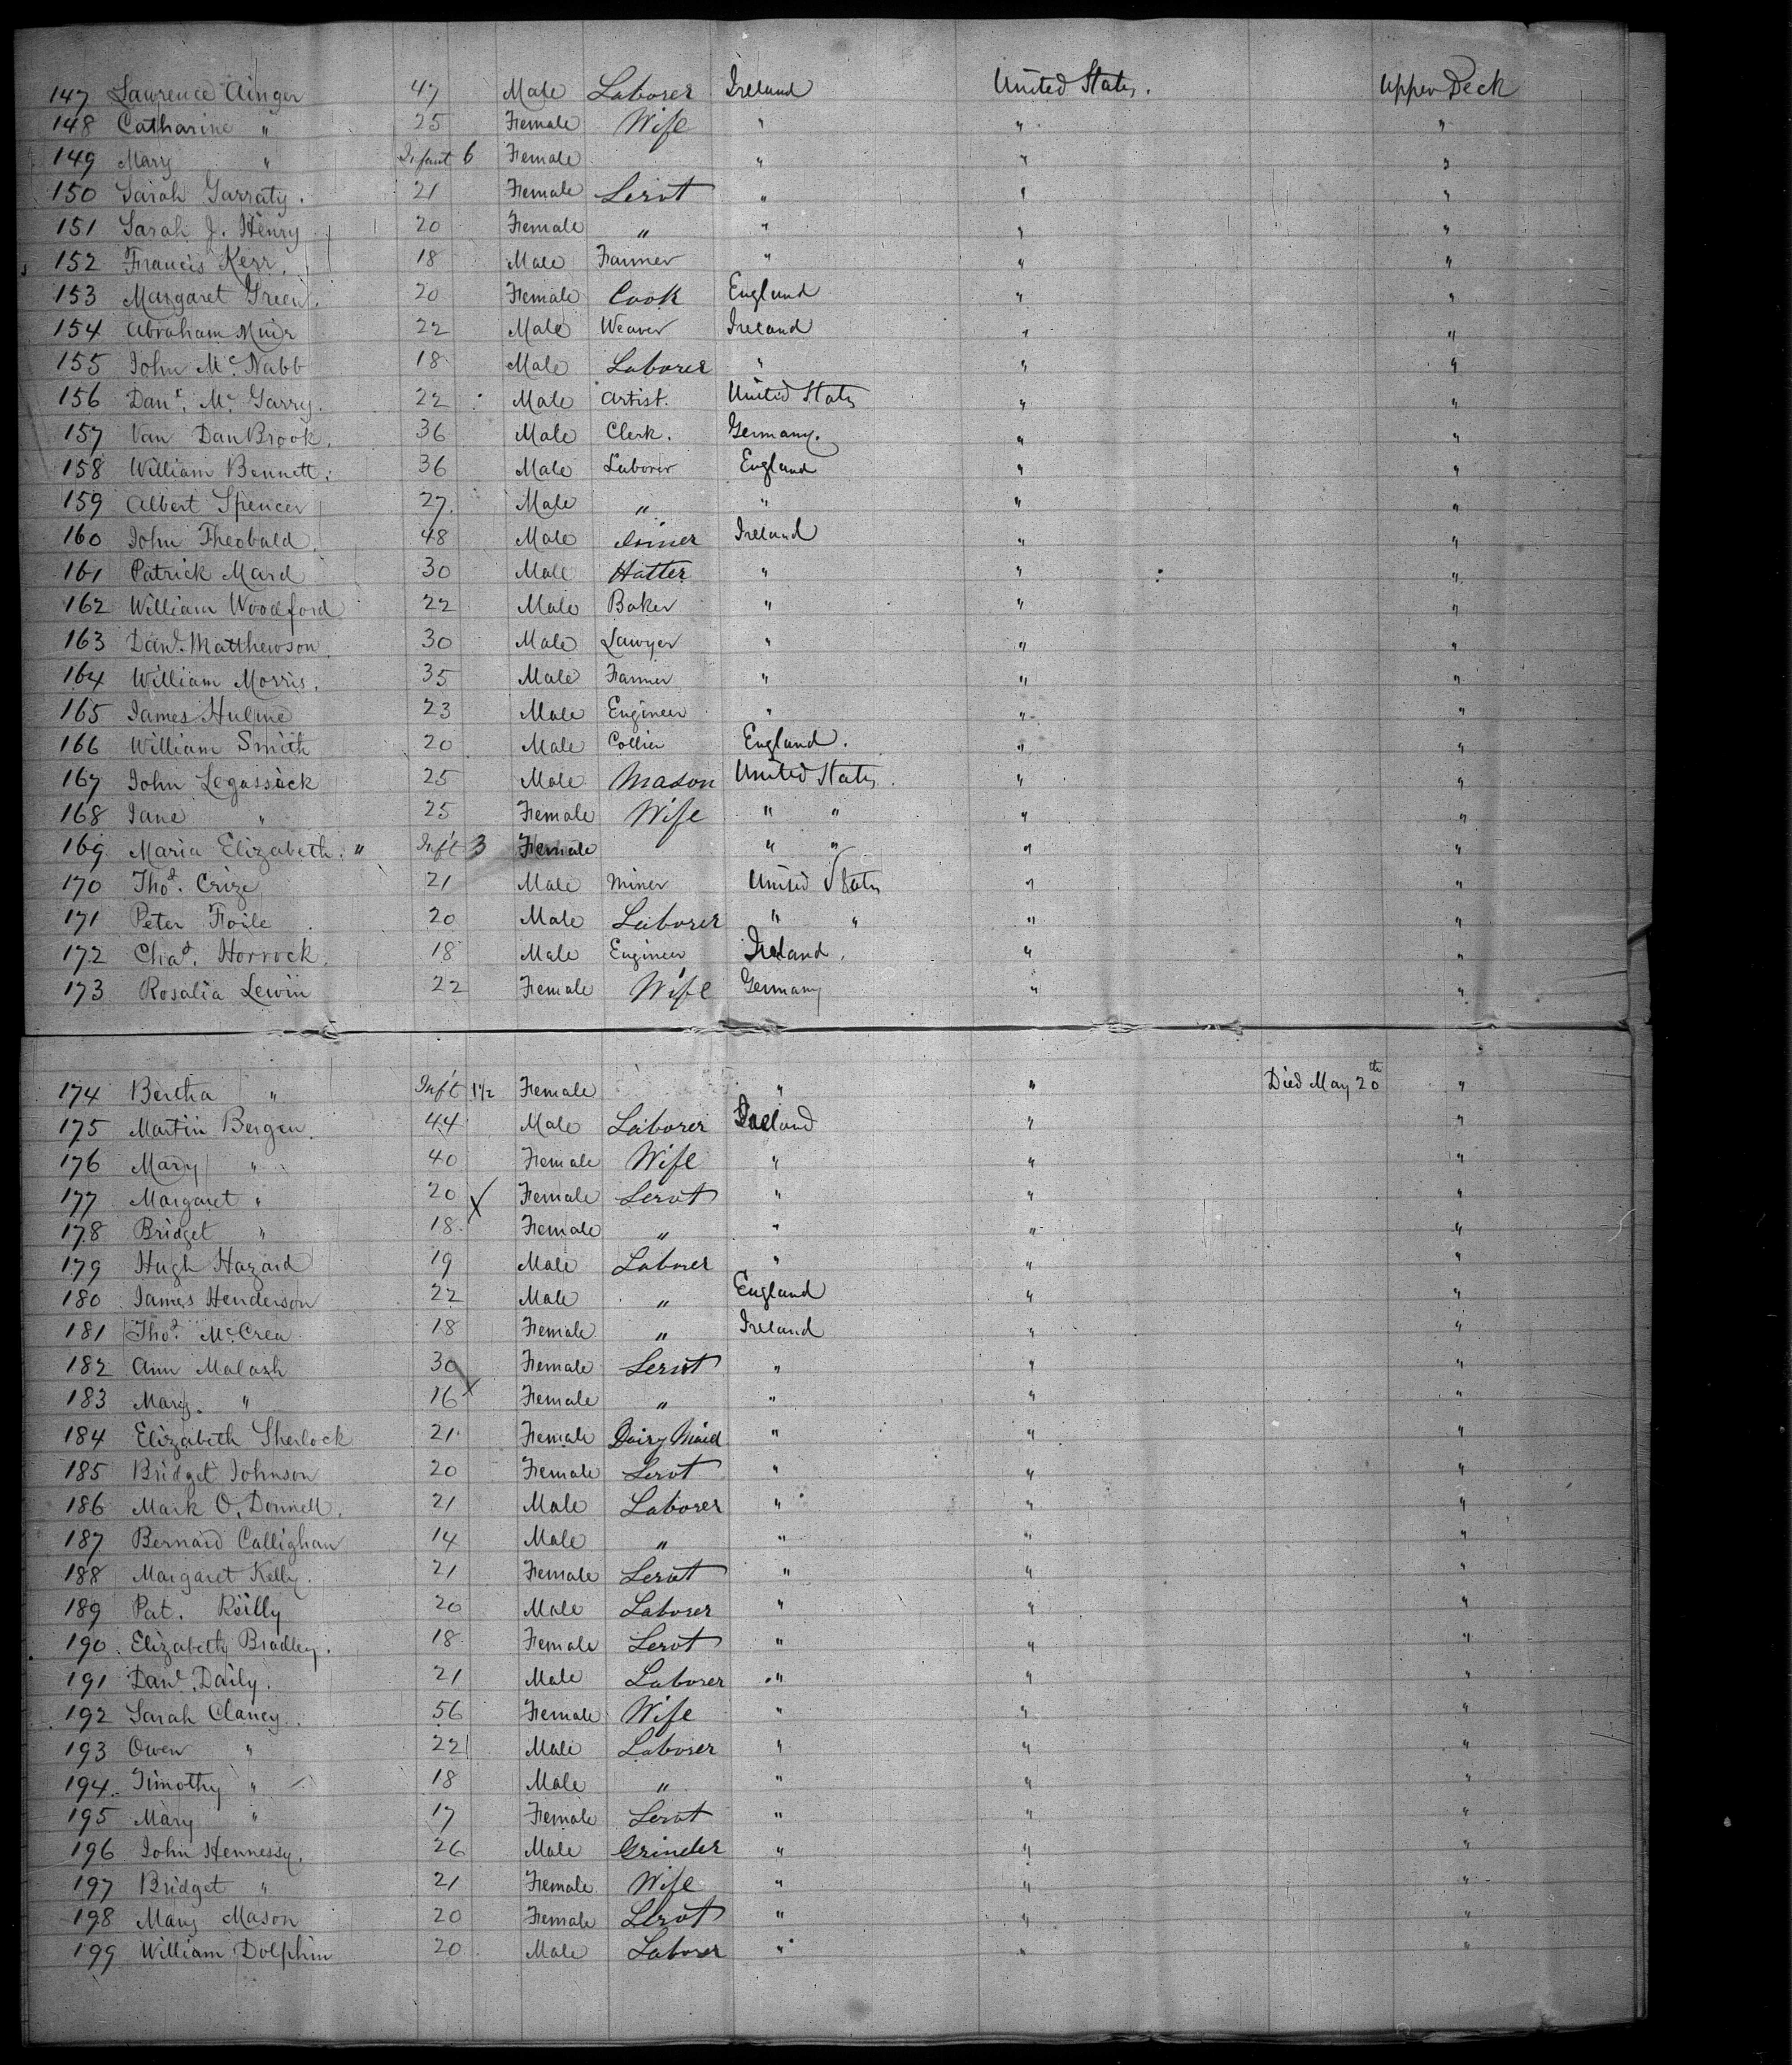 147 Lawrence Ainger 47 Male Laborer Ireland United States. Upper Deck
148 Catharine " 25 Female Wife " " "
149 Mary " Infant 6 Female " " "
150 Sarah Garraty. 21 Female Servt " " "
151 Sarah J. Henry 20 Female " " " "
152 Francis Kerr. 18 Male Farmer " " "
153 Margaret Green. 20 Female Cook England " "
154 Abraham Muir 22 Male Weaver Ireland " "
155 John Mc. Nabb 18 Male Laborer " " "
156 Danl. Mc. Garry. 22 Male Artist. United States " "
157 Van Dan Brook. 36 Male Clerk. Germany. " "
158 William Bennett. 36 Male Laborer England " "
159 Albert Spencer 27. Male " " " "
160 John Theobald. 48 Male Joiner Ireland " "
161 Patrick Mard 30 Male Hatter " " "
162 William Woodford 22 Male Baker " " "
163 Danl. Matthewson. 30 Male Lawyer " " "
164 William Morris. 35 Male Farmer " " "
165 James Hulme 23 Male Engineer " " "
166 William Smith 20 Male Collier England. " "
167 John Legassick 25 Male Mason United States. " "
168 Jane " 25 Female Wife " " " "
169 Maria Elizabeth. " Inft 3 Female " " " "
170 Thos. Crize 21 Male Miner United States " "
171 Peter Foile 20 Male Laborer " " " "
172 Chas. Horrock. 18 Male Engineer Ireland. " "
173 Rosalia Lewin 22 Female Wife Germany " "
174 Bertha " Inft 1 1/2 Female " " Died May 20th "
175 Martin Bergen. 44 Male Laborer Ireland " "
176 Mary " 40 Female Wife " " "
177 Margaret " 20 X Female Servt " " "
178 Bridget " 18. Female " " " "
179 Hugh Hazard 19 Male Laborer " " "
180 James Henderson 22 Male " England " "
181 Thos. McCrea 18 Female " Ireland " "
182 Ann Malash 30 Female Servt " " "
183 Mary. " 16 Female " " " "
184 Elizabeth Sherlock 21 Female Dairy Maid " " "
185 Bridget Johnson 20 Female Servt " " "
186 Mark O. Donnell. 21 Male Laborer " " "
187 Bernard Callighan 14 Male " " " "
188 Margaret Kelly. 21 Female Servt " " "
189 Pat. Reilly 20 Male Laborer " " "
190. Elizabeth Bradley. 18 Female Servt " " "
191 Danl. Daily. 21 Male Laborer " " "
192 Sarah Clancy. 56 Female Wife " " "
193 Owen " 22 Male Laborer " " "
194. Timothy " 18 Male " " " "
195 Mary " 17 Female Servt " " "
196 John Hennessy. 26 Male Grinder " " "
197 Bridget " 21 Female Wife " " "
198 Mary Mason 20 Female Servt " " "
199 William Dolphin 20. Male Laborer " " "